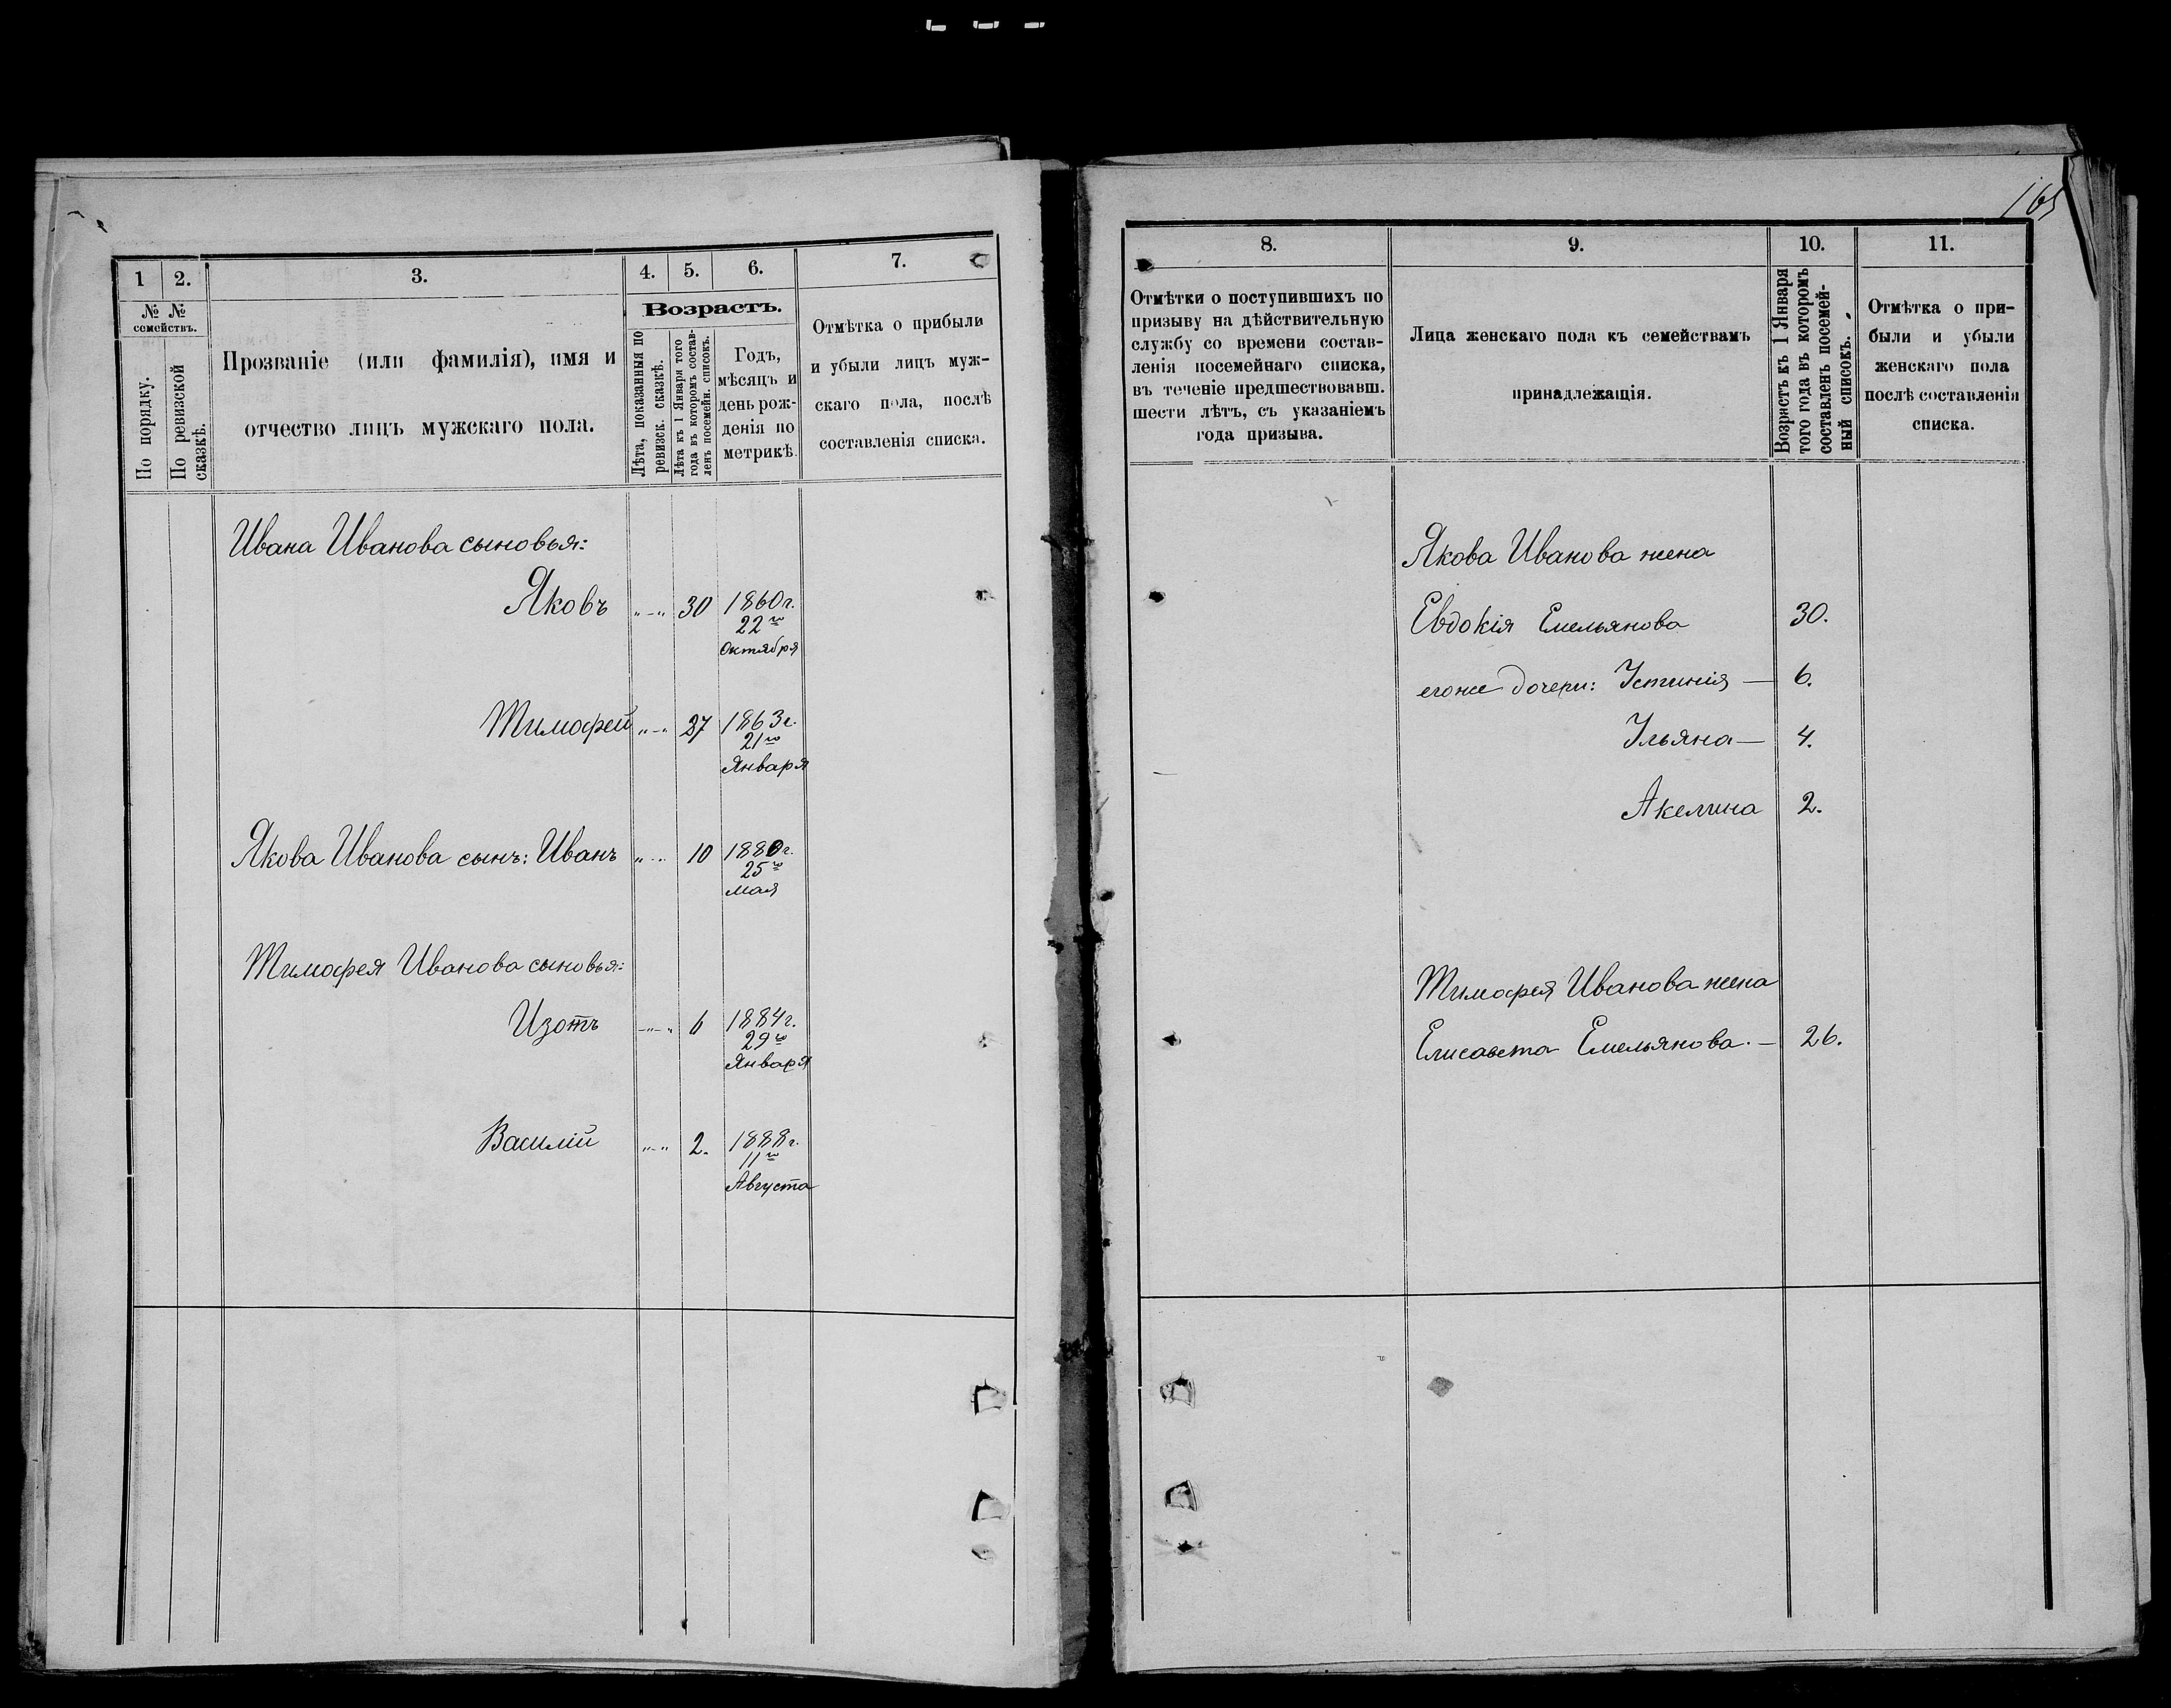 1
2.
3.
4.
5.
6.
7.
№ №
семействъ.
По порядку.
По ревизской
сказкѣ.
Прозваніе (или фамилія), имя и
отчество лицъ мужскаго пола.
Возрастъ.
Лѣта, показанныя по
ревизск. сказкѣ.
Лѣта къ 1 Января того
года въ которомъ состав-
ленъ посемейн. списокъ.
Годъ,
мѣсяцъ и
день рож-
денія по
метрикѣ.
Отмѣтка о прибыли
и убыли лицъ муж-
скаго пола, послѣ
составленія списка.
Ивана Иванова сыновья:
Яковъ „-„ 30 1860 г.
22го
Октября
Тимофей „-„ 27 1863 г.
21го
Января
Якова Иванова сынъ: Иванъ „-„ 10 1880 г.
25го
Мая
Тимофея Иванова сыновья:
Изотъ -„-„ 6 1884 г.
29го
Января
Василій „-„ 2. 1888 г.
11го
Августа
165
8.
9.
10.
11.
Отмѣтки о поступившихъ по
призыву на дѣйствительную
службу со времени состав-
ленія посемейнаго списка,
въ теченіе предшествовавш.
шести лѣтъ, съ указаніемъ
года призыва.
Лица женскаго пола къ семействамъ
принадлежащія.
Возрастъ къ 1 Января
того года въ которомъ
составленъ посемей-
ный списокъ.
Отмѣтка о при-
были и убыли
женскаго пола
послѣ составленія
списка.
Якова Иванова жена
Евдокія Емельянова 30.
егоже дочери: Устинія — 6.
Ульяна — 4.
Акелина 2.
Тимофея Иванова жена
Елисавета Емельянова. — 26.